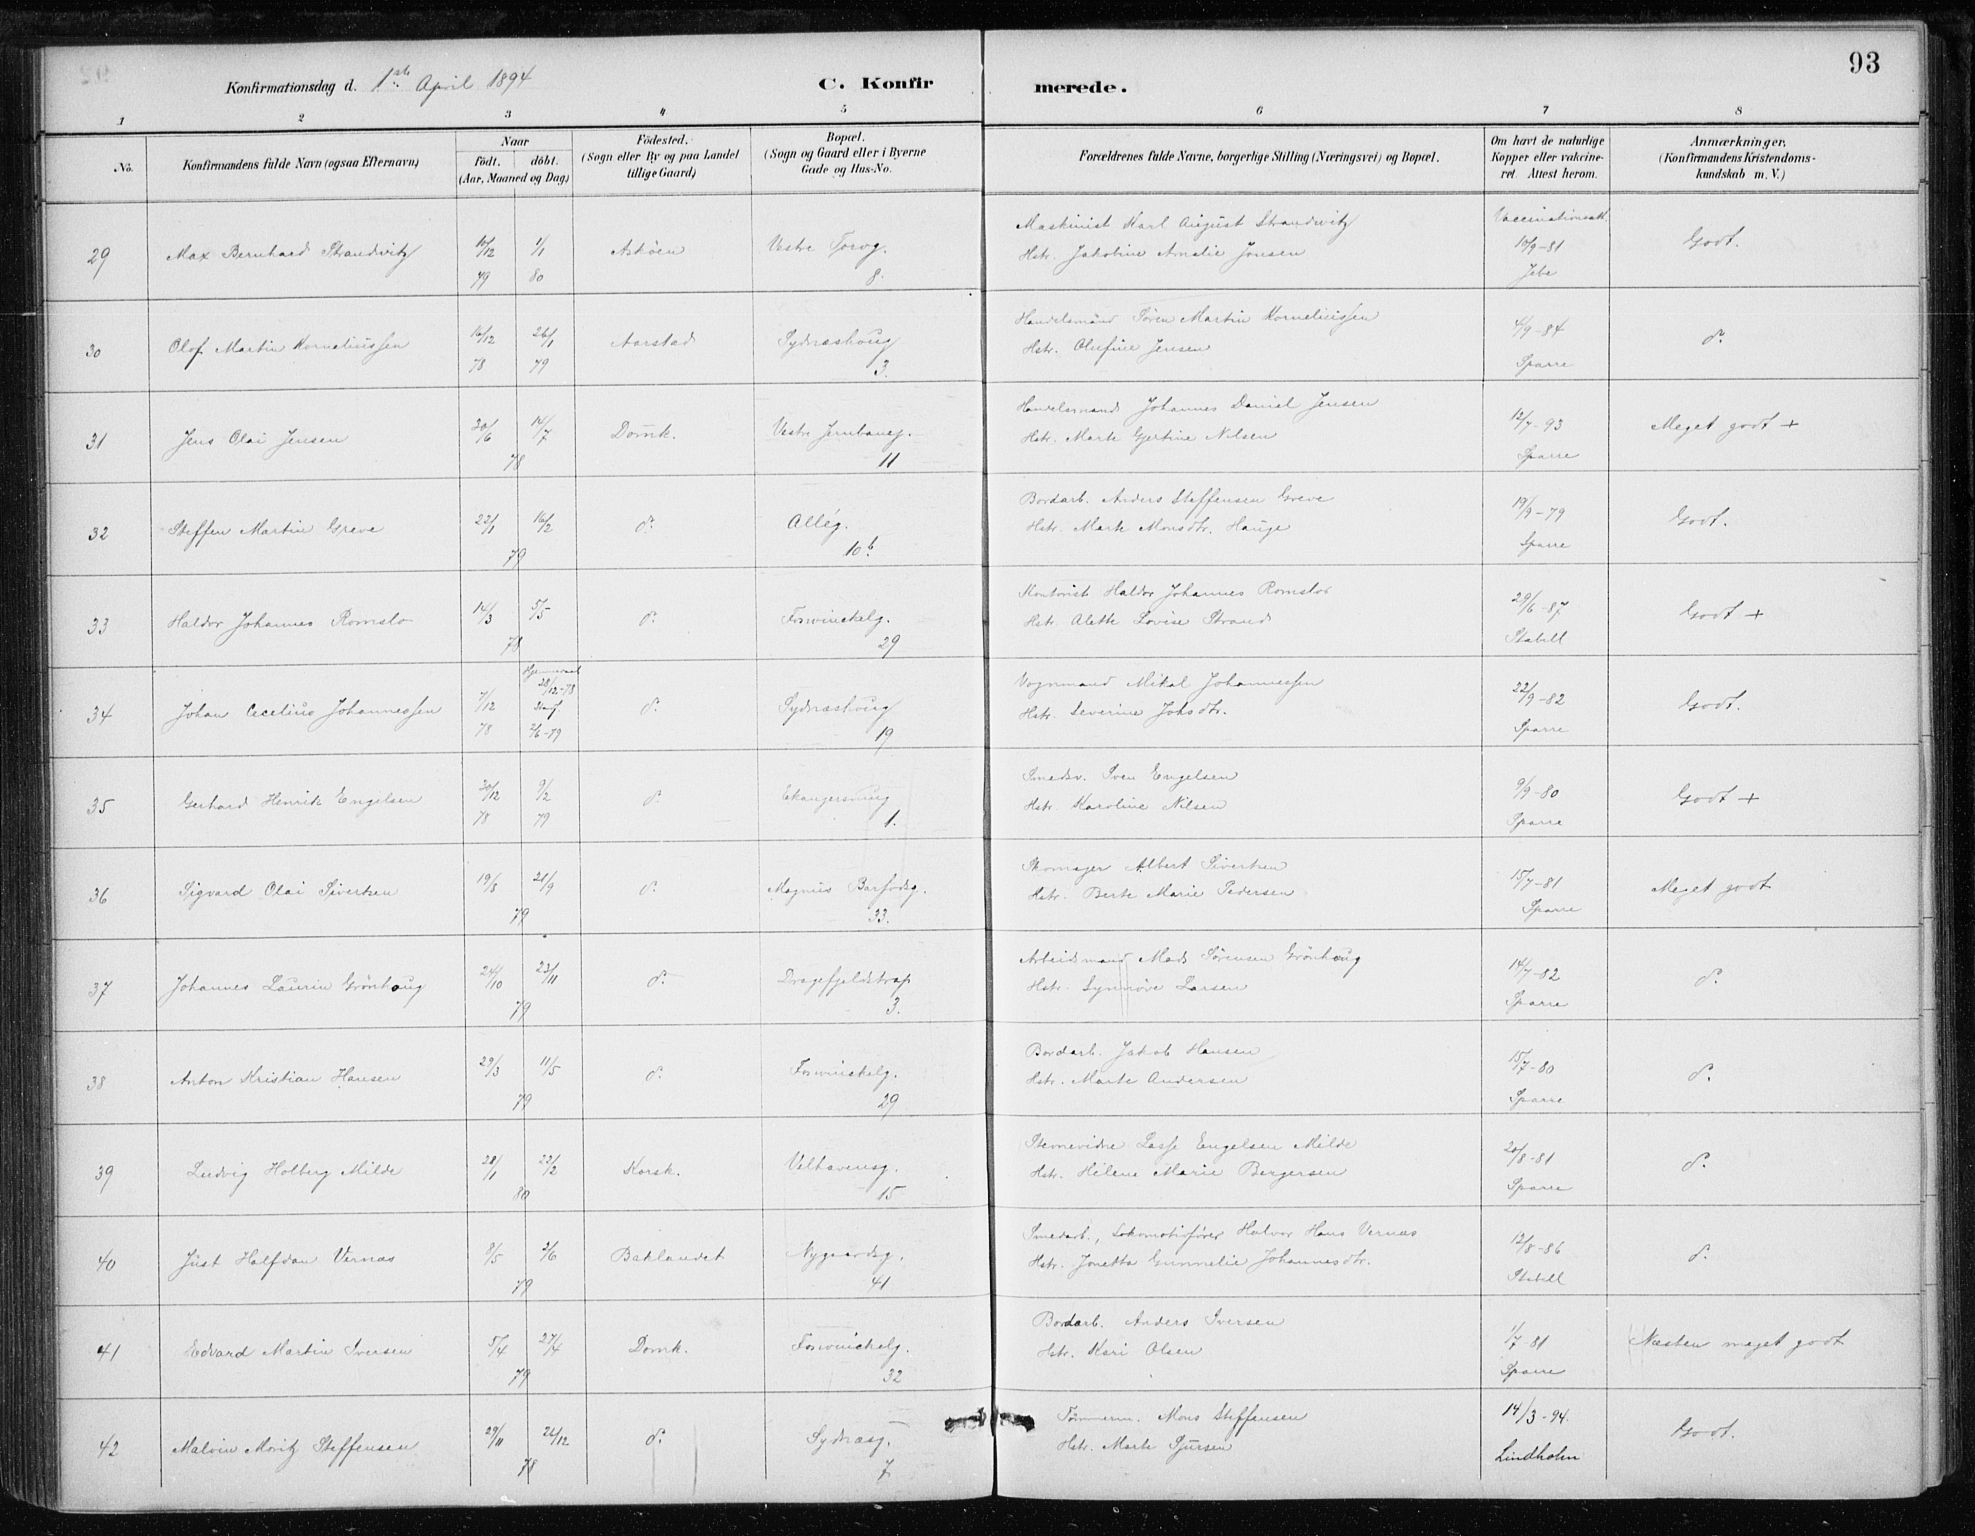 93
Konfirmationsdag d. 1ste April 1894 C. Konfir merede.
1 2 3 4 5 6 7 8
No. Konfirmandens fulde Navn (ogsaa Efternavn) Naar födt. döbt. (Aar, Maaned og Dag) Födested. (Sogn eller By og paa Landet tillige Gaard) Bopæl. (Sogn og Gaard eller i Byerne Gade og Hus-No. Forældrenes fulde Navne, borgerlige Stilling (Næringsvei) og Bopæl. Om havt de naturlige Kopper eller vakcineret. Attest herom. Anmærkninger, (Konfirmandens Kristendomskundskab m. V.)
Maskinist Karl August Strandwitz Vaccinationsatt.
29 Max Bernhard Strandwitz 10/12 1/1 Asköen Vestre Torvg. Hstr. Jakobine Amalie Jonsen 10/9-81 Godt.
79 80 8. Jebe
Handelsmand Sören Martin Kornelissen
30 Olof Martin Korneliussen 16/12 26/1 Aarstad Sydnæshoug Hstr. Olufine Jensen 4/9-84 do.
78 79 3. Sparre
Handelsmand Johannes Daniel Jensen
31 Jens Olai Jensen 30/6 14/7 Domk. Vestre Jernbaneg. Hstr. Marte Gjertine Nilsen 12/7-93 Meget godt +
78 11 Sparre
Bordarb. Anders Steffensen Greve
32 Steffen Martin Greve 22/1 16/2 do. Allég. Hstr. Marte Monsdtr. Hauge 19/9-79 Godt.
79 10b. Sparre
Kontorist Haldor Johannes Romslo
33 Haldor Johannes Romslo 14/3 5/5 do. Fosvinckelg. Hstr. Alette Lovise Strand 29/6-87 Godt +
78 29 Stabell
Hjemmedøbt 28/12-78 Vognmand Mikal Johannessen
34 Johan Cecelius Johannessen 7/12 do. Sydnæshoug Hstr. Severine Johsdtr. 22/9-82 Godt.
78 2/6-79 19 Sparre
Smedsv. Sven Engelsen
35 Gerhard Henrik Engelsen 30/12 9/2 do. Ekangersmug Hstr. Karoline Nilsen 9/9-80 Godt +
78 79 1. Sparre
Skomager Albert Sivertsen
36 Sigvard Olai Sivertsen 19/8 21/9 do. Magnus Barfodsg. Hstr. Berte Marie Pedersen 15/7-81 Meget godt
79 33. Sparre
Arbeidsmand Mads Sørensen Grönhaug
37 Johannes Laurin Grönhaug 24/10 23/11 do. Dragefjeldstrap Hstr. Synnöve Larsen 14/7-82 do.
79 3. Sparre
Bordarb. Jakob Hansen
38 Anton Kristian Hansen 29/3 11/5 do. Fosvinckelg. Hstr. Marte Andersen 15/7-80 do.
79 29 Sparre
Stevnevidne Lasse Engelsen Milde
39 Ludvig Holberg Milde 28/1 22/2 Korsk. Velhavensg. Hstr. Helene Marie Bergersen 20/8-81 do.
80 15 Sparre
Smedarb., Lokomotivfører Halvor Hans Vernæs
40 Just Halfdan Vernæs 8/5 2/6 Baklandet Nygaardsg. Hstr. Jonetta Gunnelie Johannesdtr. 12/8-86 do.
79 41 Stabell
Bordarb. Anders Iversen
41 Edvard Martin Iversen 5/4 27/4 Domk. Fosvinckelg. Hstr. Kari Olsen 1/7-81 Næsten meget godt
79 32 Sparre
Tömmerm. Mons Steffensen
42 Malvin Moritz Steffensen 29/11 26/12 do. Sydnæsg. Hstr. Marte Sjursen 14/3-94. Godt.
78 7. Lindholm